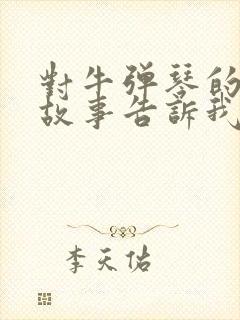 對牛弹琴的
故事告訴我
李天佑